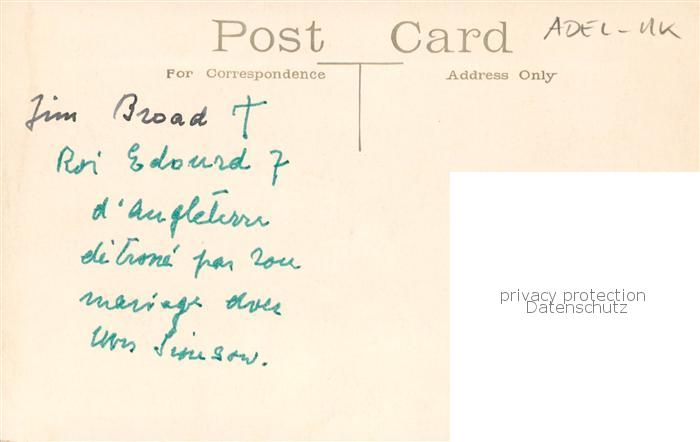 Post Card
ADEL-UK
For Correspondence
Address Only
Jim Broad †
Roi Edouard 7
d'Angleterre
détroné par son
mariage avec
Mrs Simson.
privacy protection
Datenschutz